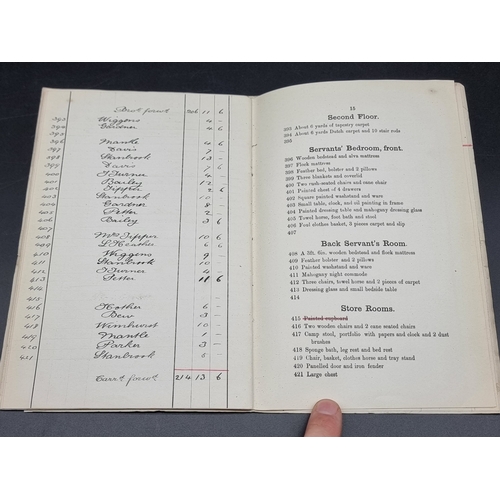 Bro.t forw.d 208 11 6
393 Wiggens 4 —
394 Gardner 4 6
395
396 Mantle 4 —
397 Davis 7 —
398 Stanbrook 13 —
399 Davis 7 6
400 T. Turner 4 —
401 Bailey 12
402 Tipper 2 6
403 Stanbrook 10
404 Gardner 8 —
405 Petter 2 —
406 Bailey 3 6
407
408 Mrs Tipper 10 6
409 L. Heather 6 6
410 Wiggens 9 —
411 Stanbrook 10
412 T. Turner 4 —
413 Petter 18 6
414
415
416 Hother 6 —
417 Dew 3 —
418 Wimhurst 10
419 Mantle 1 —
420 Parker 3 —
421 Stanbrook 5
Carr.d forw.d 214 13 6
15
Second Floor.
393 About 6 yards of tapestry carpet
394 About 8 yards Dutch carpet and 10 stair rods
395
Servants' Bedroom, front.
396 Wooden bedstead and alva mattress
397 Flock mattress
398 Feather bed, bolster and 2 pillows
399 Three blankets and coverlid
400 Two rush-seated chairs and cane chair
401 Painted chest of 4 drawers
402 Square painted washstand and ware
403 Small table, clock, and oil painting in frame
404 Painted dressing table and mahogany dressing glass
405 Towel horse, foot bath and stool
406 Foul clothes basket, 3 pieces carpet and slip
407
Back Servant's Room.
408 A 3ft. 6in. wooden bedstead and flock mattress
409 Feather bolster and 2 pillows
410 Painted washstand and ware
411 Mahogany night commode
412 Three chairs, towel horse and 2 pieces of carpet
413 Dressing glass and small bedside table
414
Store Rooms.
415 Painted cupboard
416 Two wooden chairs and 2 cane seated chairs
417 Camp steel, portfolio with papers and clock and 2 dust
brushes
418 Sponge bath, leg rest and bed rest
419 Chair, basket, clothes horse and tray stand
420 Panelled door and iron fender
421 Large chest